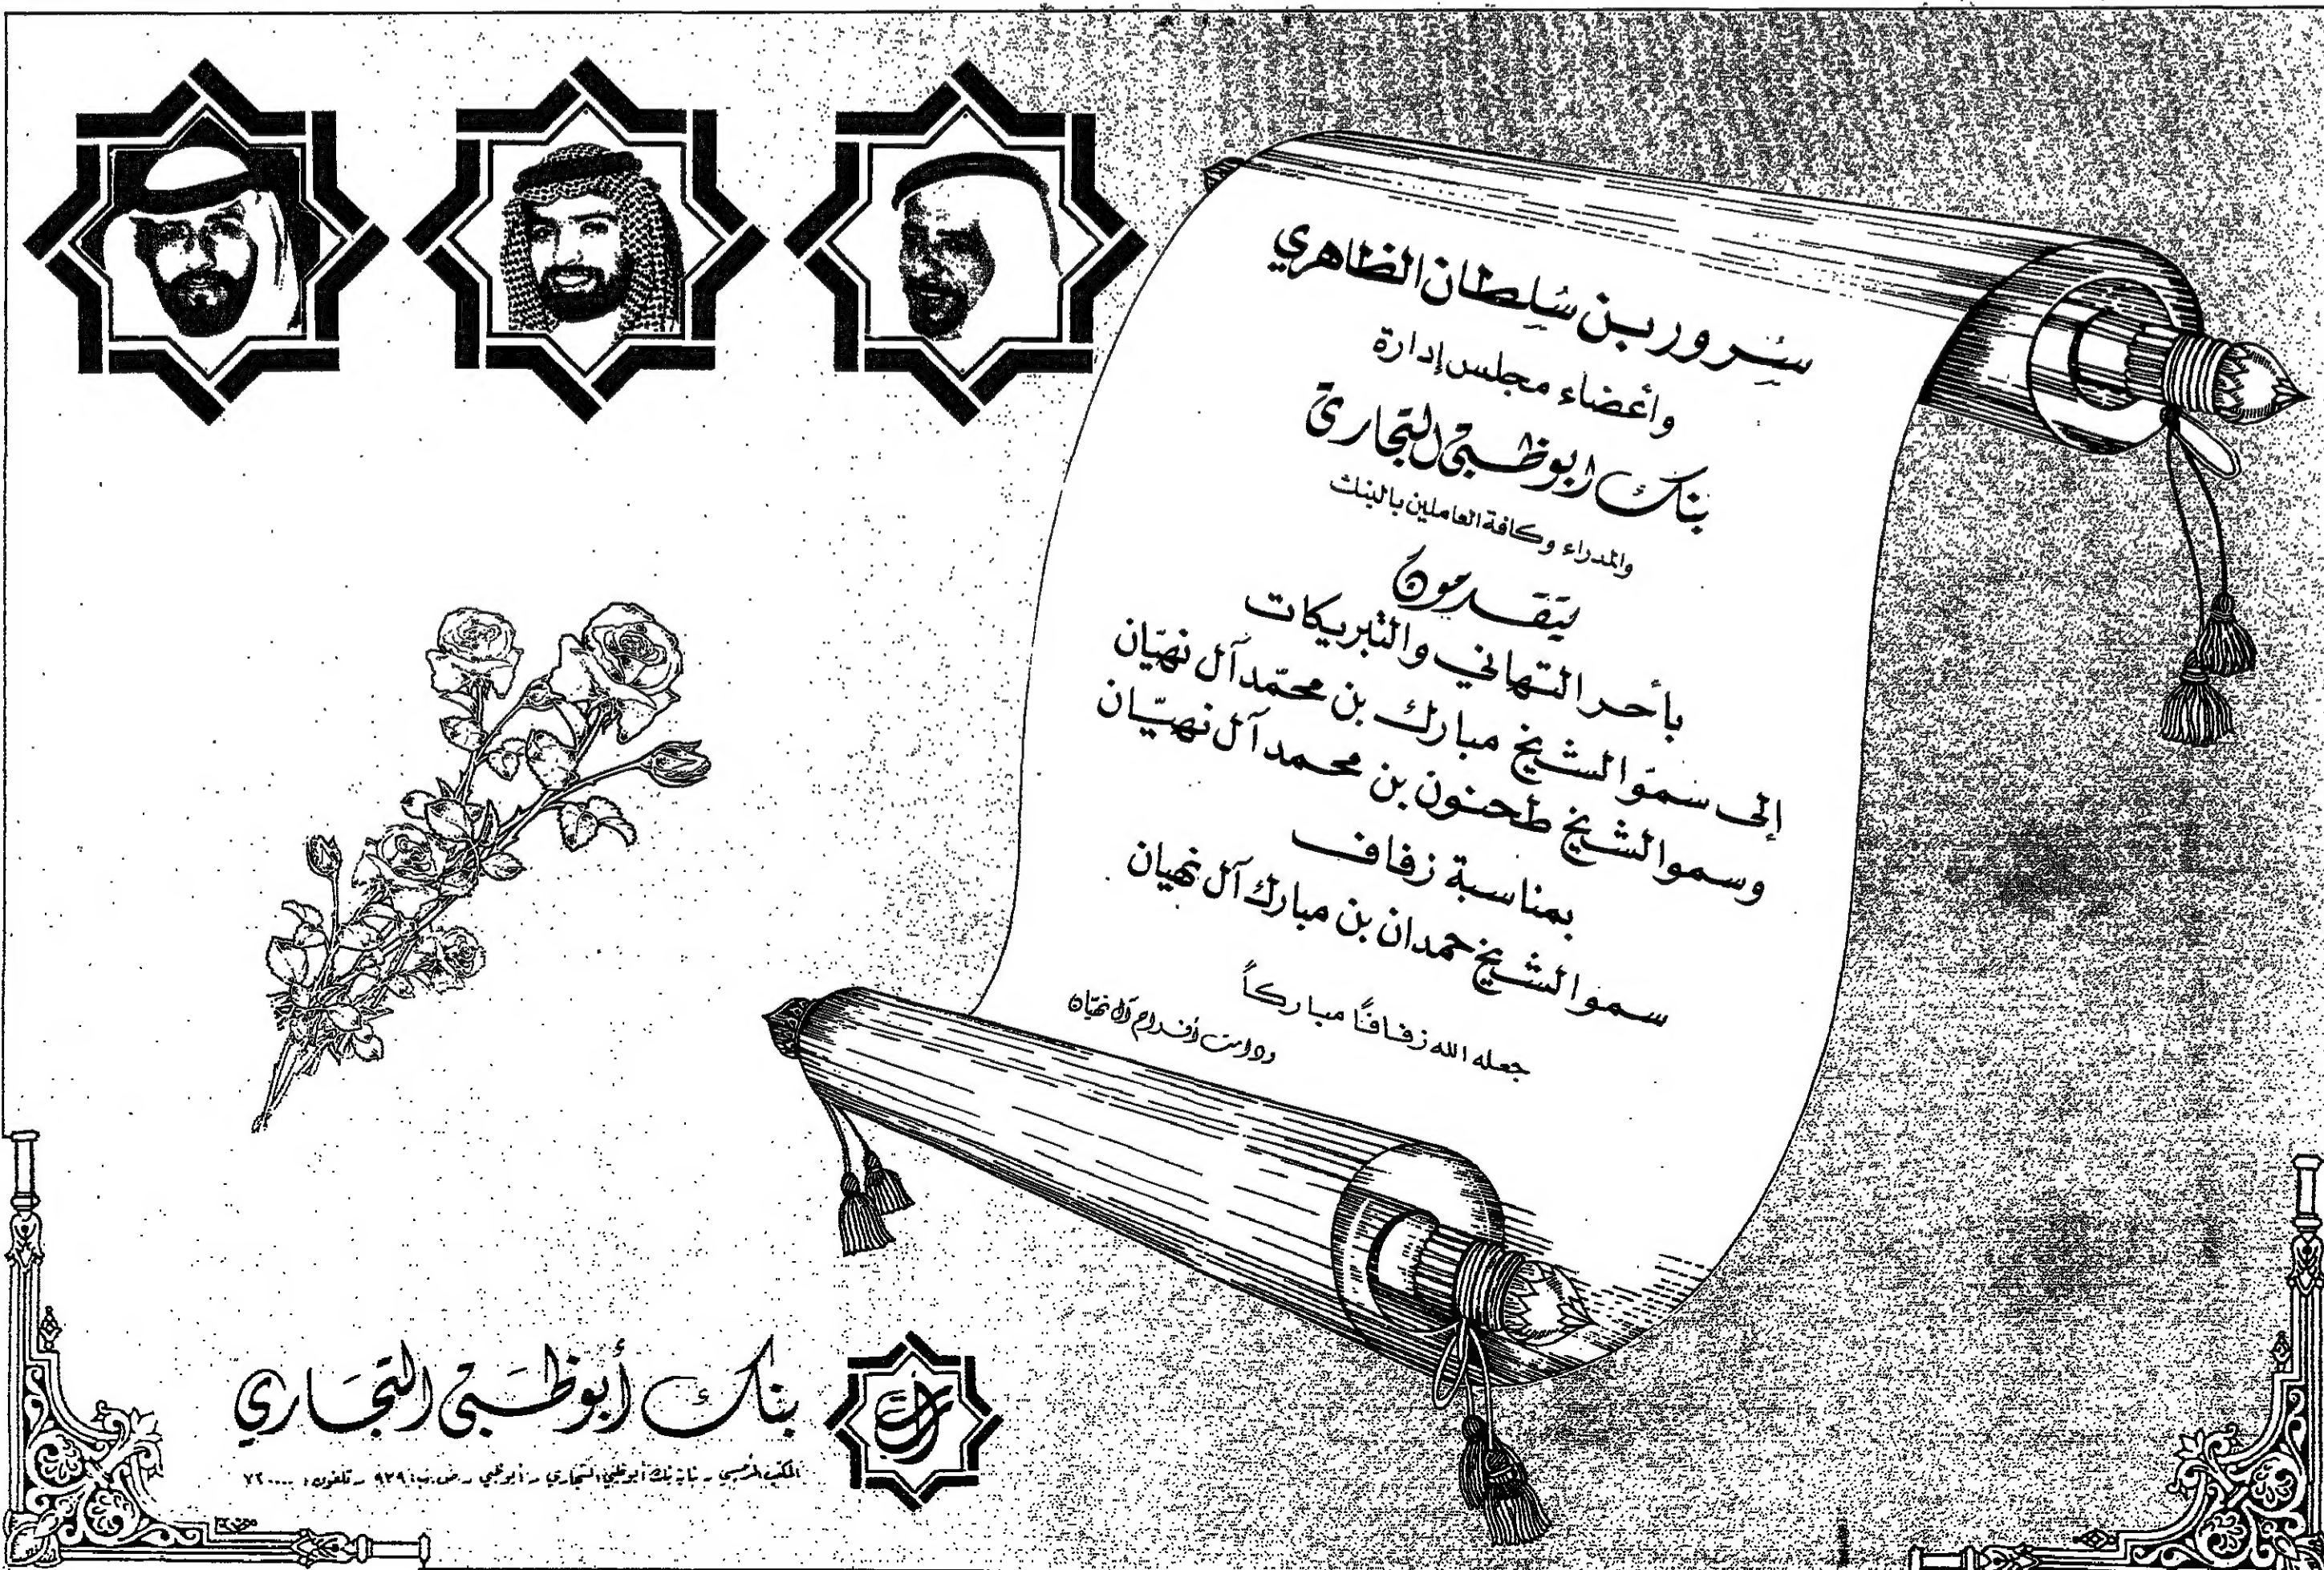 سرور بن سلطان الظاهري
وأعضاء مجلس إدارة
بنك ابوظبي التجاري
والمدراء وكافة العاملين بالبنك
يتقدمون
بأحر التهاني والتبريكات
إلى سمو الشيخ مبارك بن محمّد آل نهيّان
وسمو الشيخ طحنون بن محمد آل نهيّان
بمناسبة زفاف
سمو الشيخ حمدان بن مبارك آل نهيان
جعله الله زفافاً مباركاً
ودامت أفراح آل نهيّان
بنك أبوظبي التجاري
المكتب الرئيسي - بناية بنك أبوظبي التجاري - أبوظبي - ص.ب: ٩٣٩ - تلفون: